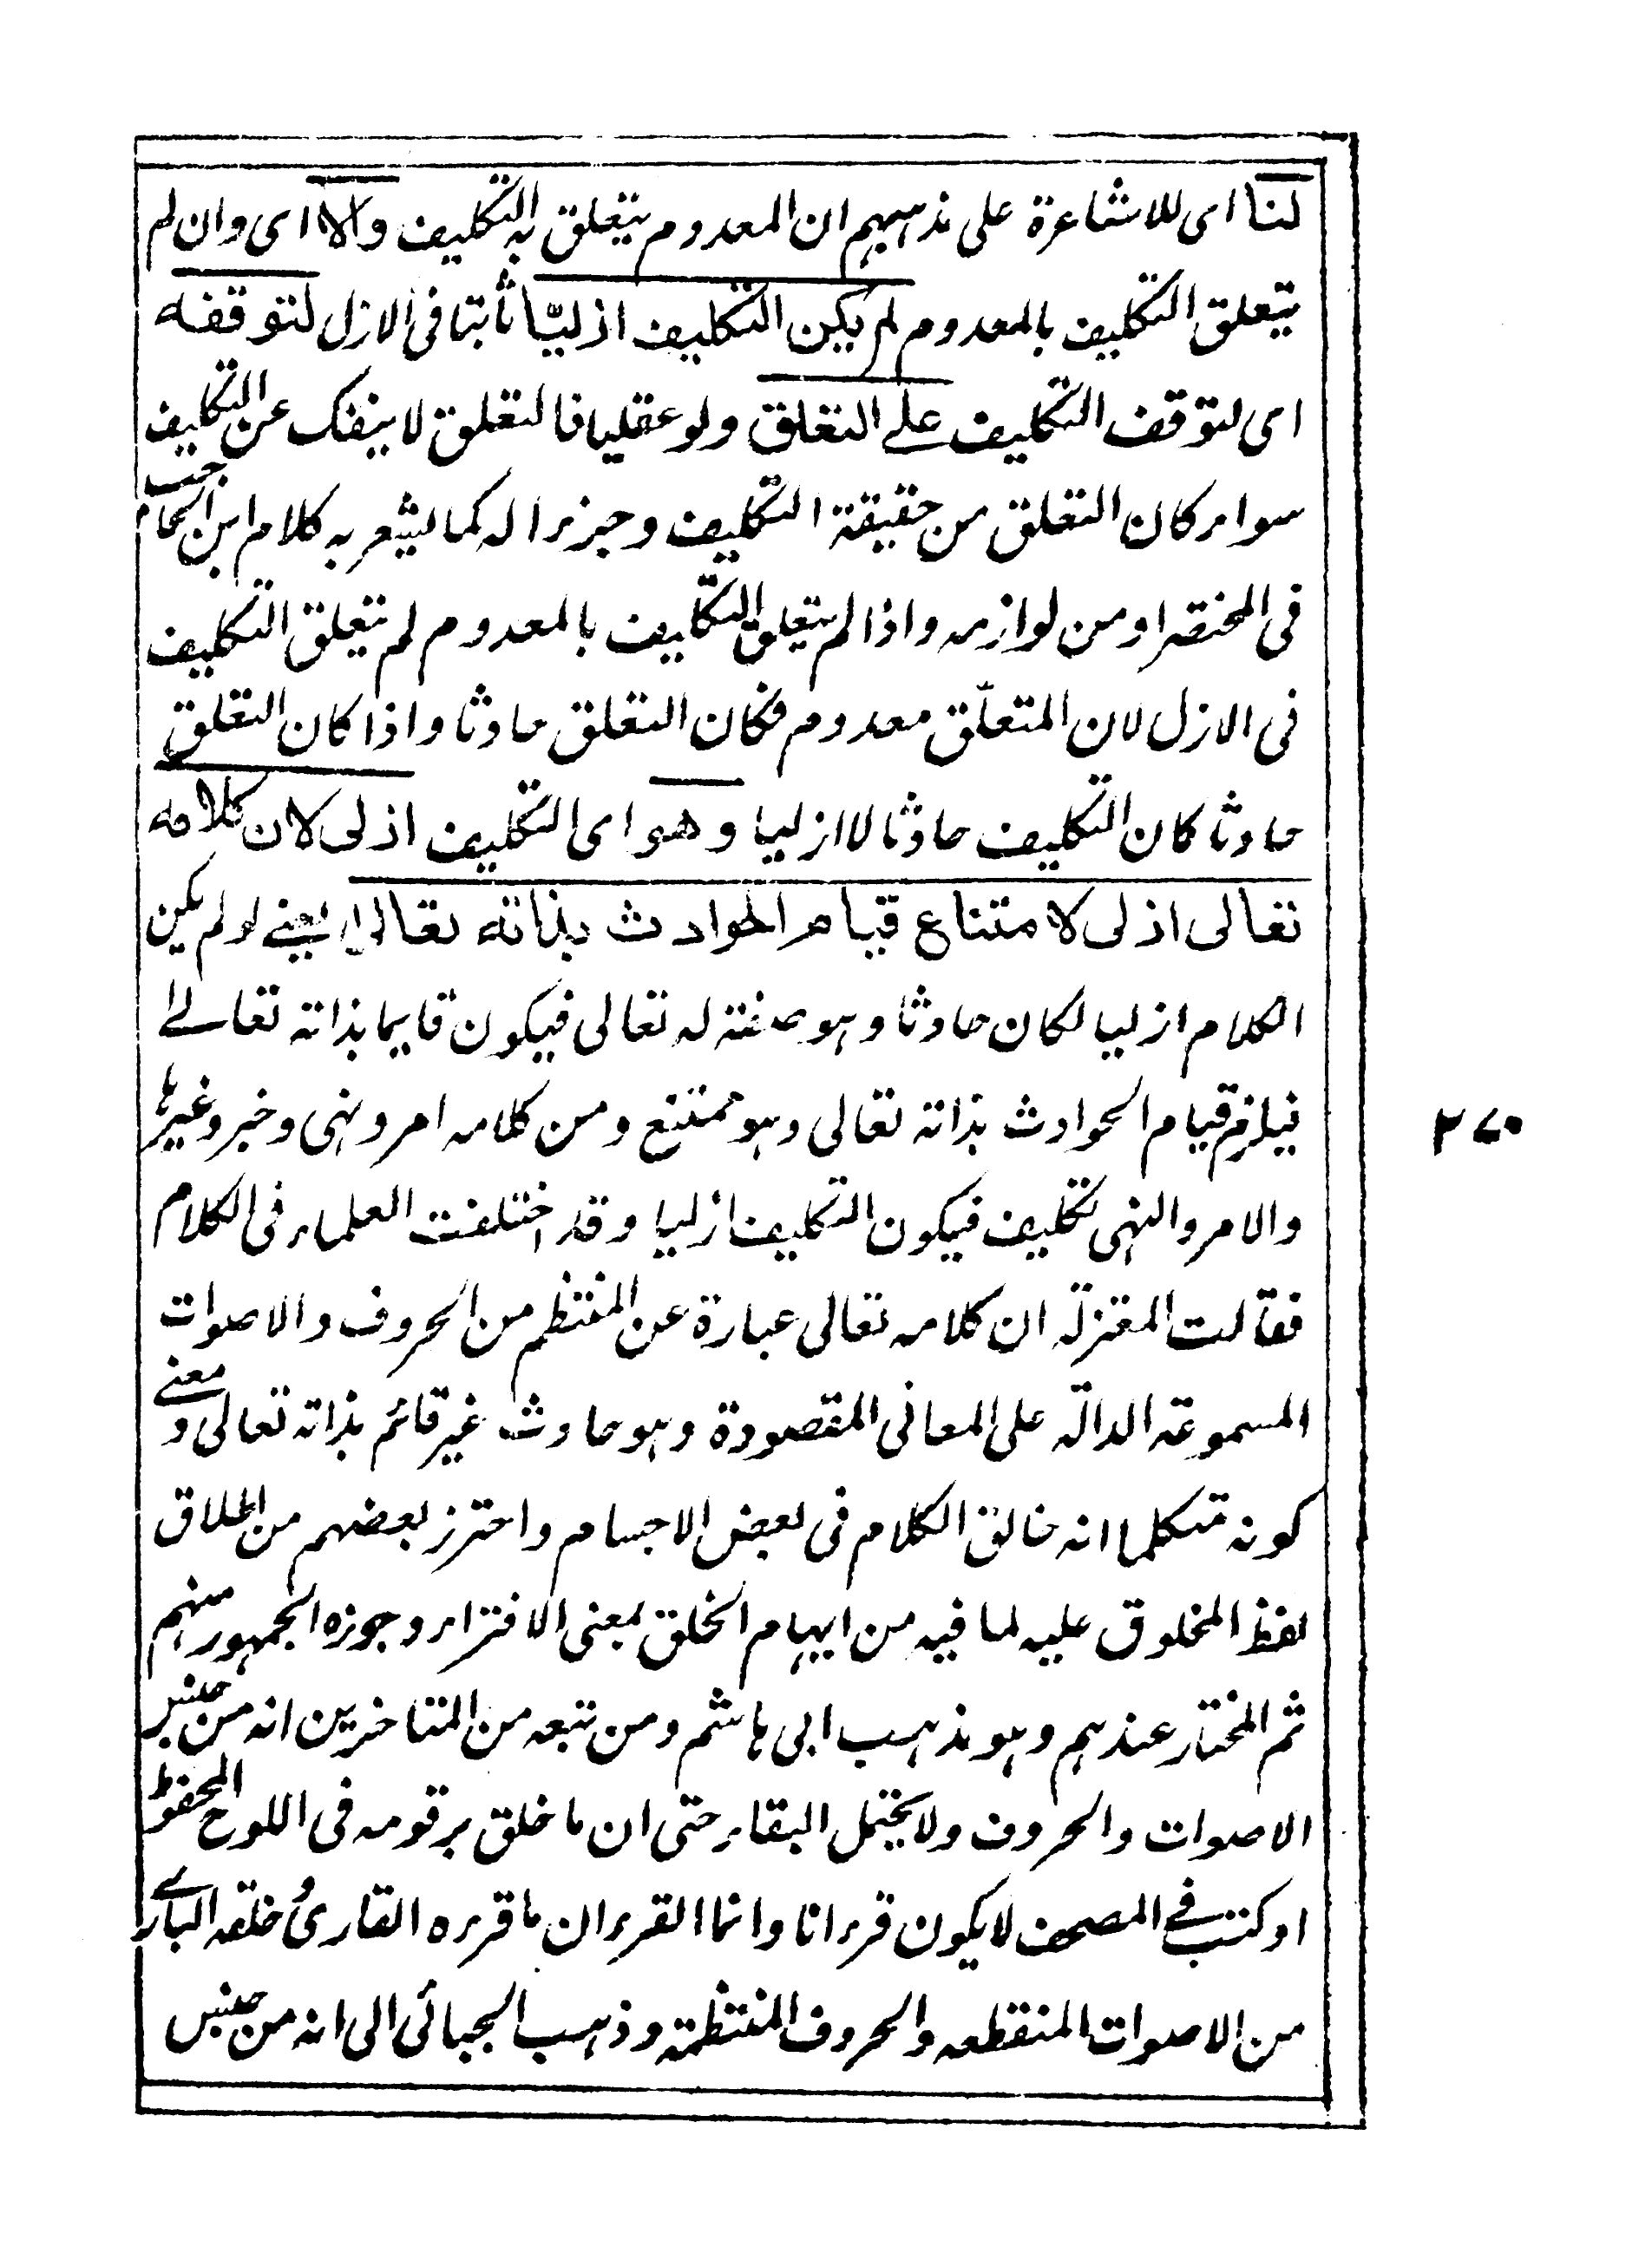 لنا اى للاشاعرة على مذهبهم ان المعدوم يتعلق به التكليف والا اى وان لم
يتعلق التكليف بالمعدوم لم يكن التكليف ازليّا ثابتا فى الازل لتوقفه
اى لتوقف التكليف على التعلق ولو عقليا فالتعلق لا ينفك عن التكليف
سواء كان التعلق من حقيقة التكليف وجزءا له كما يشعر به كلام ابن الحاجب
فى المختصر او من لوازمه واذا لم يتعلق التكليف بالمعدوم لم يتعلق التكليف
فى الازل لان المتعلّق معدوم فكان التعلق حادثا واذا كان التعلق
حادثا كان التكليف حادثا لا ازليا وهو اى التكليف ازلى لان كلامه
تعالى ازلى لامتناع قيام الحوادث بذاته تعالى يعنے لو لم يكن
الكلام ازليا لكان حادثا وهو صفة له تعالى فيكون قايما بذاته تعالے
فيلزم قيام الحوادث بذاته تعالى وهو ممتنع ومن كلامه امر ونهى وخبر وغيرها
والامر والنهى تكليف فيكون التكليف ازليا وقد اختلفت العلماء فى الكلام
فقالت المعتزلة ان كلامه تعالى عبارة عن المنتظم من الحروف والاصوات
المسموعة الدالّة على المعانى المقصودة وهو حادث غير قائم بذاته تعالى ومعنے
كونه متكلما انه خالق الكلام فى بعض الاجسام واحترز بعضهم من اطلاق
لفظ المخلوق عليه لما فيه من ايهام الخلق بمعنى الافتراء وجوزه الجمهور منهم
ثم المختار عندهم وهو مذهب ابى هاشم ومن تبعه من المتاخرين انه من جنس
الاصوات والحروف ولا يحتمل البقاء حتى ان ما خلق برقومه فى اللوح المحفوظ
او كتب فے المصحف لا يكون قرءانا وانما القرءان ما قرءه القارئُ وخلقه البارے
من الاصوات المنقطعه والحروف المنتظمة وذهب الجبائى الى انه من جنس
٢٧٠